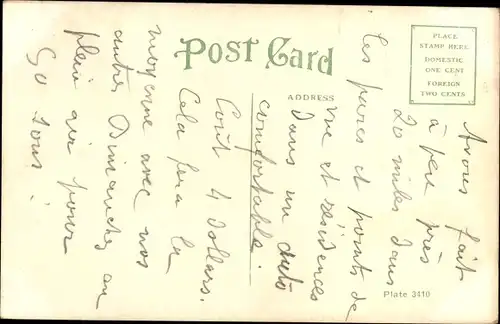 POST CARD
ADDRESS
PLACE
STAMP HERE
DOMESTIC
ONE CENT
FOREIGN
TWO CENTS
Plate 3410
Avons fait
à peu près
20 miles dans
les parcs et points de
vue et résidences
Dans un auto
comfortable.
Coût 4 Dollars.
Cela fera la
moyenne avec nos
autres Dimanches au
plein qui pour
50 sous!